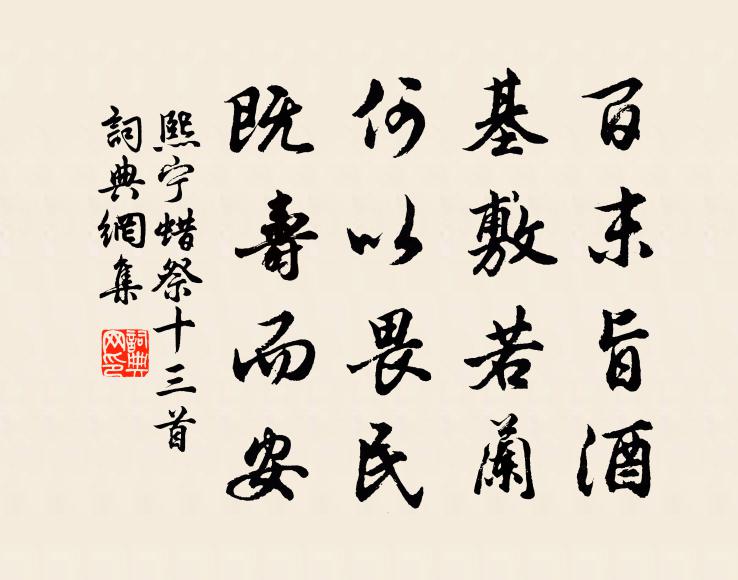 百末旨酒
基敷若蘭
何以畏民
既壽而安
熙宁蜡祭十三首
詞典網集
詞典网印